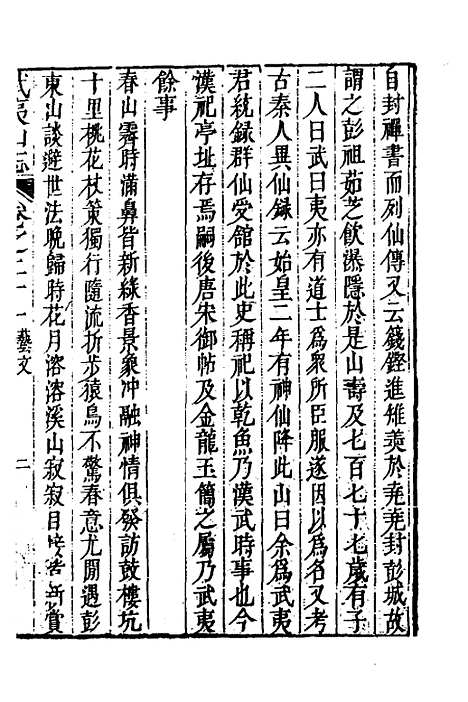 自封禪書而列仙傳又云籛鏗進雉羮於堯堯封彭城故
謂之彭祖茹芝飲瀑隱於是山壽及七百七十七歲有子
二人曰武曰夷亦有道士爲衆所臣服遂因以爲名又考
古秦人異仙録云始皇二年有神仙降此山曰余爲武夷
君統録群仙受館於此史稱祀以乾魚乃漢武時事也今
漢祀亭址存焉嗣後唐宋御帖及金龍玉簡之屬乃武夷
餘事
春山霽時滿鼻皆新綠香景象冲融神情俱發訪鼓樓坑
十里桃花杖策獨行隨流折步猿鳥不驚春意尤閒遇彭
東山談避世法晩歸時花月溶溶溪山寂寂目
新賞
武夷山志
卷之二十一藝文
二